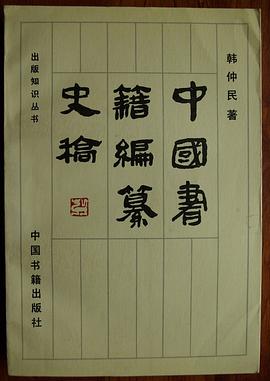 韩仲民著
中國書
籍編纂
史稿
出版知识丛书
中国书籍出版社